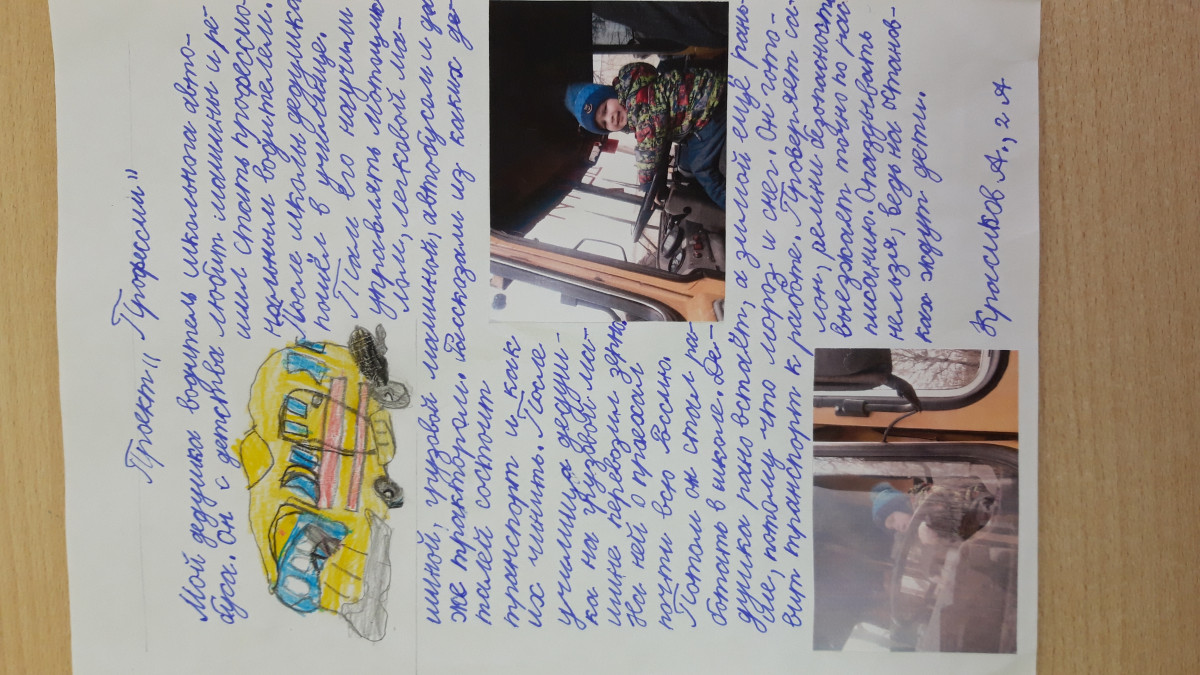 Проект „ Профессии"
Мой дедушка водитель школьного авто-
буса. Он с детства любит машины и ре-
шил стать профессио-
нальным водителем.
После школы дедушка
пошёл в училище.
Там его научили
управлять мотоцик-
лом, легковой ма-
шиной, грузовой машиной, автобусом и да-
же трактором. Рассказали из каких де-
талей состоит
транспорт и как
их чинить. После
училища дедуш-
ка на грузовой ма-
шине перевозил зерно.
На ней о проехал
почти всю Россию.
Потом он стал ра-
ботать в школе. Де-
душка рано встаёт, а зимой ещё рань-
ше, потому что мороз и снег. Он гото-
вит транспорт к работе. Проверяет са-
лон, ремни безопасности
выезжает точно по рас-
писанию. Опаздывать
нельзя, ведь на останов-
ках ждут дети.
Красиков А., 2 А